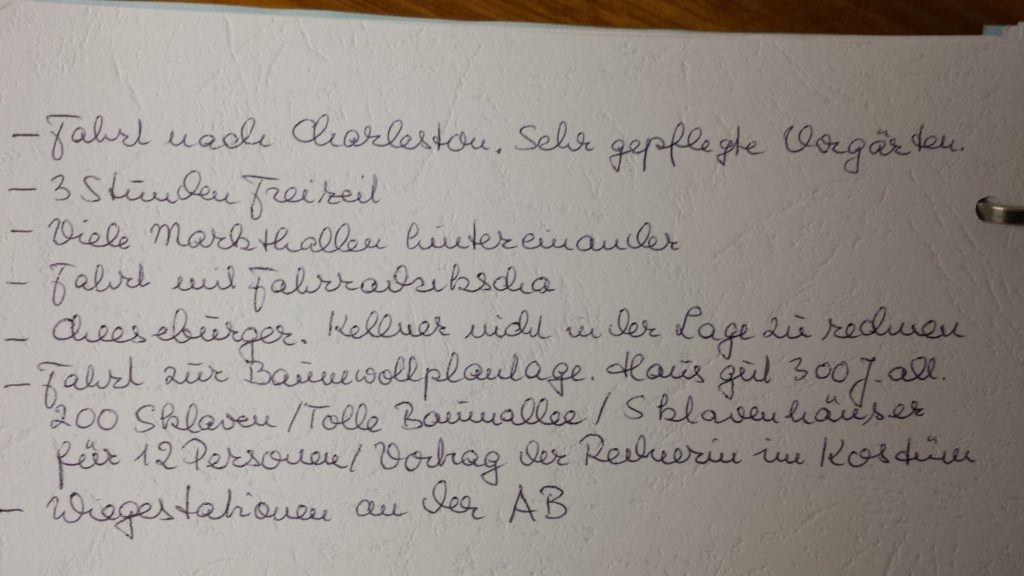 - Fahrt nach Charleston. Sehr gepflegte Vorgärten.
- 3 Stunden Freizeit
- Viele Markthallen hintereinander
- Fahrt mit Fahrradrikscha
- Cheeseburger. Kellner nicht in der Lage zu rechnen
- Fahrt zur Baumwollplantage. Haus gut 300 J. alt.
200 Sklaven / Tolle Baumallee / Sklavenhäuser
für 12 Personen / Vortrag der Rednerin im Kostüm
- Wiegestationen an der AB